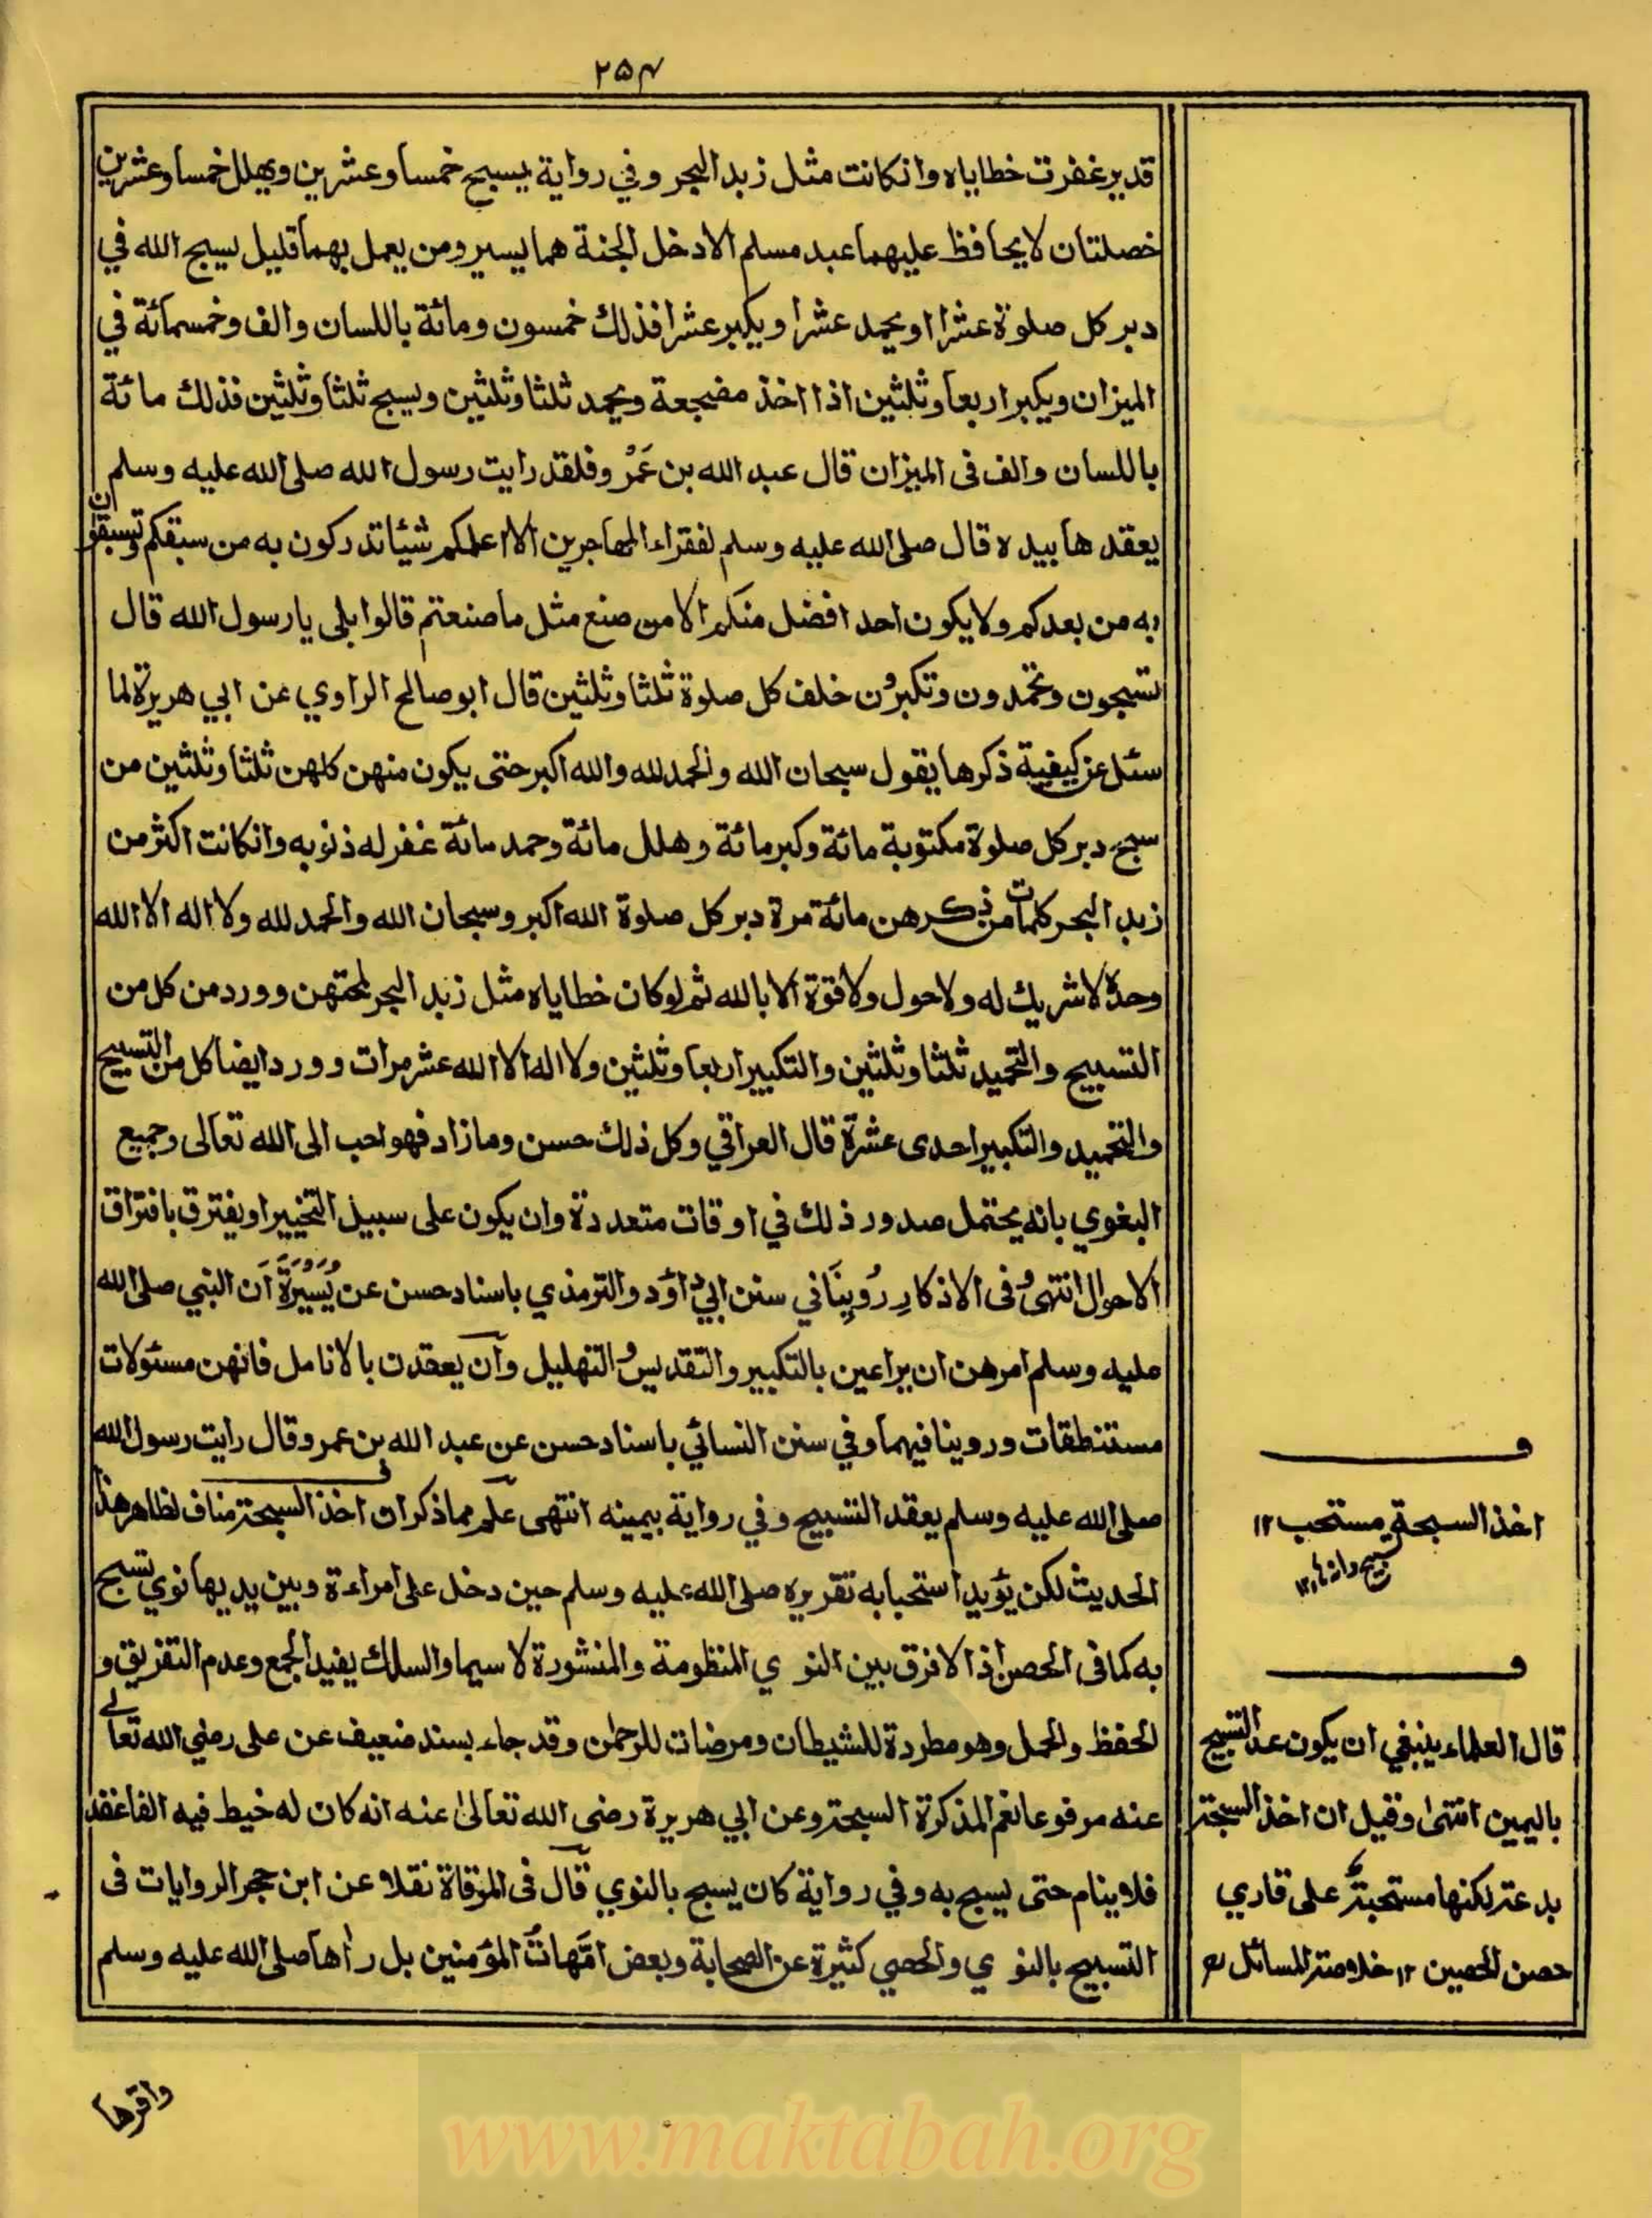 ٢٥٤
قدير غفرت خطاياه وانكانت مثل زبد البحر وفي رواية يسبح خمسا وعشرين ويهلل خمسا وعشرين
خصلتان لا يحافظ عليهما عبد مسلم الا دخل الجنة هما يسير ومن يعمل بهما قليل يسبح الله في
دبر كل صلوة عشرا او يحمد عشرا ويكبر عشرا فذلك خمسون ومائة باللسان والف وخمسمائة في
الميزان ويكبر اربعا وثلثين اذا اخذ مضجعة ويحمد ثلثا وثلثين ويسبح ثلثا وثلثين فذلك مائة
باللسان والف فى الميزان قال عبد الله بن عَمْرو فلقد رايت رسول الله صلى الله عليه وسلم
يعقدها بيده قال صلى الله عليه وسلم لفقراء المهاجرين الا اعلمكم شيئا تدركون به من سبقكم وتسبقون
به من بعدكم ولا يكون احد افضل منكم الا من صنع مثل ما صنعتم قالوا بلى يا رسول الله قال
تسبحون وتحمدون وتكبرون خلف كل صلوة ثلثا وثلثين قال ابو صالح الراوي عن ابي هريرة لما
سئل عن كيفية ذكرها يقول سبحان الله والحمد لله والله اكبر حتى يكون منهن كلهن ثلثا وثلثين من
سبح دبر كل صلوة مكتوبة مائة وكبر مائة وهلل مائة وحمد مائة غفر له ذنوبه وانكانت اكثر من
زبد البحر كلمات من ذكرهن مائة مرة دبر كل صلوة الله اكبر وسبحان الله والحمد لله ولا اله الا الله
وحده لا شريك له ولا حول ولا قوة الا بالله ثم لو كان خطاياه مثل زبد البحر لمحتهن وورد من كل من
التسبيح والتحميد ثلثا وثلثين والتكبير اربعا وثلثين ولا اله الا الله عشر مرات وورد ايضا كل من التسبيح
والتحميد والتكبير احدى عشرة قال العراقي وكل ذلك حسن وما زاد فهو احب الى الله تعالى وجميع
البغوي بانه يحتمل صدور ذلك في اوقات متعددة وان يكون على سبيل التخيير او يفترق بافتراق
الاحوال انتهى وفى الاذكار رُوِينَا في سنن ابي داؤد والترمذي باسناد حسن عن يُسَيْرَةَ ان النبي صلى الله
عليه وسلم امرهن ان يراعين بالتكبير والتقديس والتهليل وان يعقدن بالانامل فانهن مسئولات
مستنطقات وروينا فيهما وفي سنن النسائي باسناد حسن عن عبد الله بن عمرو قال رايت رسول الله
صلى الله عليه وسلم يعقد التسبيح وفي رواية بيمينه انتهى علم مما ذكر ان اخذ السبحة مناف لظاهر هذا
الحديث لكن يؤيد استحبابه تقريره صلى الله عليه وسلم حين دخل على امراءة وبين يديها نوي تسبح
به كما فى الحصن اذ لا فرق بين النوي المنظومة والمنثورة لا سيما والسلك يفيد الجمع وعدم التفريق و
الحفظ والحمل وهو مطردة للشيطان ومرضات للرحمن وقد جاء بسند ضعيف عن على رضي الله تعالى
عنه مرفوعا نعم المذكرة السبحة وعن ابي هريرة رضى الله تعالى عنه انه كان له خيط فيه الفا عقد
فلا ينام حتى يسبح به وفي رواية كان يسبح بالنوي قال فى المرقاة نقلا عن ابن حجر الروايات فى
التسبيح بالنوي والحصي كثيرة عن الصحابة وبعض امهات المؤمنين بل راها صلى الله عليه وسلم
ف
اخذ السبحة مستحب ١٢
ف
قال العلماء ينبغي ان يكون عد التسبيح
باليمين انتهى وقيل ان اخذ السبحة
بدعة لكنها مستحبة على قاري
حصن الحصين ١٢ خلاصة المسائل
واقرها
www.maktabah.org